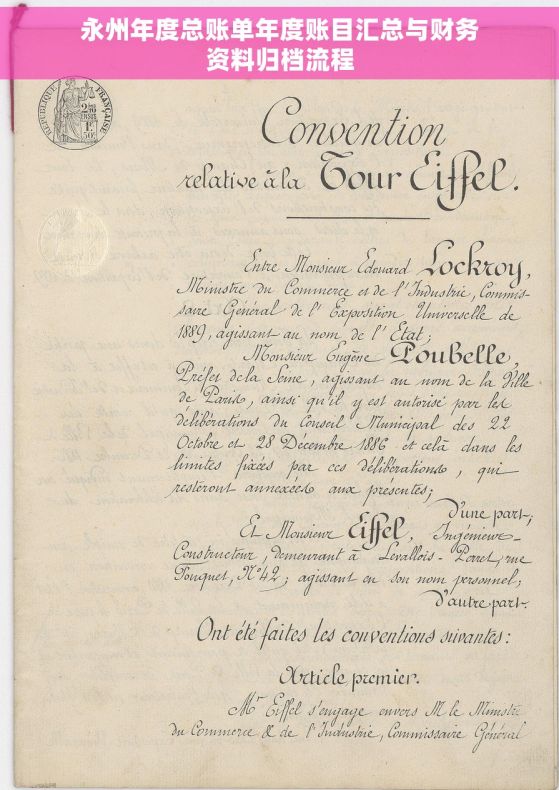 永州年度总账单年度账目汇总与财务
资料归档流程
RÉPUBLIQUE FRANÇAISE
Convention
relative à la Tour Eiffel.
Entre Monsieur Edouard Lockroy,
Ministre du Commerce et de l'Industrie, Commis-
saire Général de l'Exposition Universelle de
1889, agissant au nom de l'Etat;
Monsieur Eugène Poubelle,
Préfet de la Seine, agissant au nom de la Ville
de Paris, ainsi qu'il y est autorisé par les
délibérations du Conseil Municipal des 22
Octobre et 28 Décembre 1886 et celà dans les
limites fixées par ces délibérations, qui
resteront annexées aux présentes;
d'une part;
Et Monsieur Eiffel, Ingénieur-
Constructeur, demeurant à Levallois-Perret, rue
Fouquet, N° 42; agissant en son nom personnel;
d'autre part.
Ont été faites les conventions suivantes:
Article premier.
Mr Eiffel s'engage envers M le Ministre
du Commerce & de l'Industrie, Commissaire Général